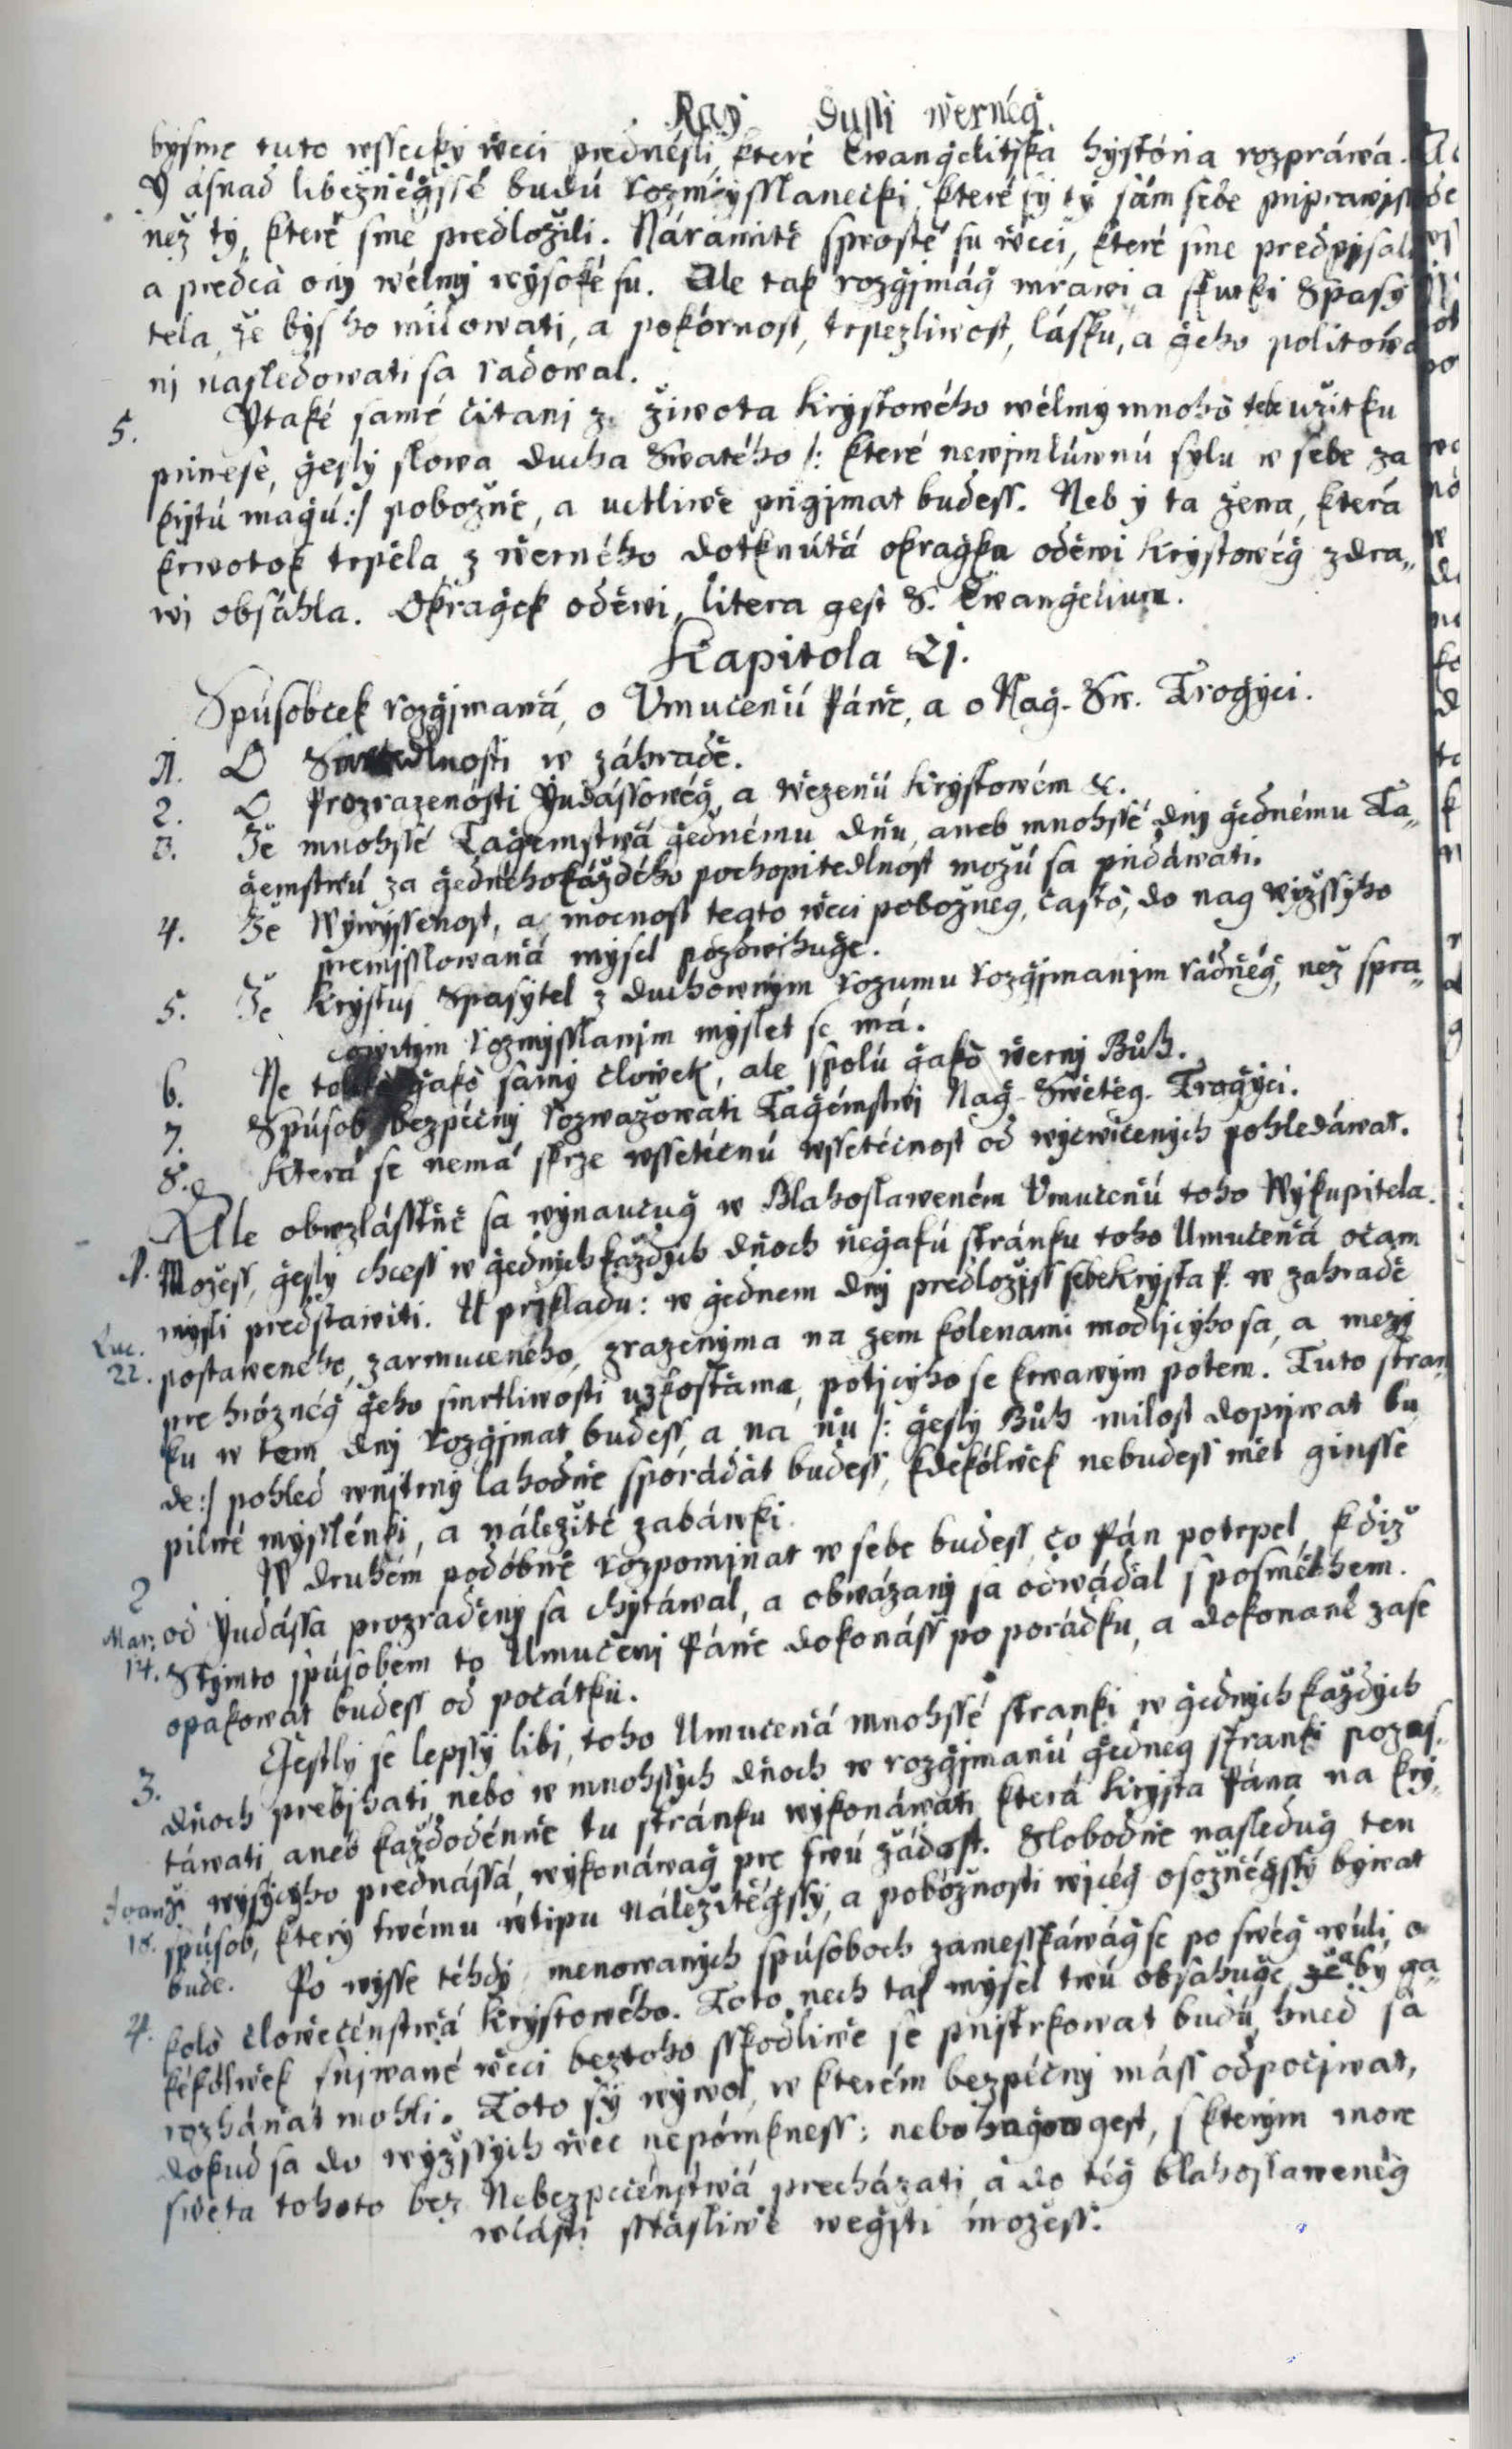 Rag Dussi werneg.
bysme tuto wssecky weci prednésli, které Ewangelitska hystória rozpráwá.
Y asnad libeznégssé budú rozmyssłanečki, které sy ty sám sebe priprawjss
než ty, které sme predložili. Náramité sprosté su wěci, které sme predpisali
a predca oný wélmi wysoké su. Ale tak rozgjmág mrawi a skutki Spasy
tela, že bys ho milowati, a pokórnost, trpezliwost, lásku, a geho politowá
nj nasledowati sa radowal.
5. Ytaké samé čitanj z. žiwota Krystowého wélmy mnoho tebe užitku
prinese, gesly slowa Ducha Swatého /: které newimlúwnú sylu w sebe za
kritú magú :/ pobožně, a uctliwě prigjmat budess. Neb y ta žena, která
krwotok trpěla z werného dotknútá okragka oděwi Krystowég zdra„
wj obsáhla. Okragek oděwi, litera gest S. Ewangelium.
Kapitola 21.
Spúsobček rozgjmaná, o Umučenú Páně, a o Nag. Sw. Trogyci.
1. O Smutedlnosti w záhradě.
2. O Prozrazenósti Yudássowég, a Wězenú Krystowém &.
3. Že mnohssé Tagemstwá gednému dňu, aneb mnohssé dny gednému Ta„
gemstwú za gedného každého pochopitedlnost možú sa pridáwati.
4. Že Wywyssenost, a mocnost tegto wěci pobožneg, často, do nag wyžssyho
premisslowaná mysel pozdwihuge.
5. Že Krystus Spasytel z duchowným rozumu rozgjmanjm rádněg, než spra„
cowitým rozmysslanjm myslet se má.
6. Ne tolko gako samý člowek, ale spolu gako werný Bůh.
7. Spúsob bezpéčný rozwažowati Tagémstwj Nag-Swětég. Trogyci.
8. Která se nemá skrze wssetéčnú wssetéčnost od wycwičených pohledáwat.
Ale obwzlásstně sa wynaučug w Blahoslaweném Umučenú toho Wykupitela.
1. Možess, gesly chcess w gedných každých dňoch negakú stránku toho Umučená očam
mysli predstawiti. U prjkladu: w gednem dny predložiss sebe Krysta P. w zahradě
Luc. 22. postaweného, zarmuceného, zrazenýma na zem kolenami modljcýho sa, a mezy
pre hróznég geho smrtliwosti uzkostama, potjcyho se krwawým potem. Tuto stran„
ku w tem dny rozgjmat budess, a na nu /: gesly Bůh milost dopriwat bu
de :/ pohled wnitrný lahodně sporádat budess, kdekólwek nebudess mět ginssé
pilné mysslénki, a náležité zabáwki.
2 W druhém podóbně rozpomjnat w sebe budess, čo Pán potrpel, kdiž
Mar: 14. od Yudássa prozraděný sa chytáwal, a obwázaný sa odwádal s posměchem.
Stýmto spúsobem to Umučenj Páně dokonáss po porádku, a dokonané zase
opakowat budess od počátku.
3. Gestly se lepssý libi, toho Umučená mnohssé stranki w gedných každých
dňoch prebjhati, nebo w mnohssých dňoch w rozgjmanú gedneg stranki pozas„
táwati, aneb každodénně tu stránku wykonáwati, která Krysta Pána na Kry„
Joan 18. ži wysýcýho prednássá, wykonáwag pre swú žádost. Slobodně nasledug ten
spúsob, který twému wtipu náležitěgssý, a pobóžnosti wjcég osožněgssý bywat
bude. Po wysse téhdy menowaných spúsoboch zamesskáwág se po swég wúli, o
4. kolo člowečénstwá Krystowého. Toto nech tak mysel twú obsahuge, aby ga„
kékólwek snjwané wěci beztoho sskodliwě se pristrkowat budú, hned sa
rozhánat mohli. Toto sy wywol, w kterém bezpéčný máss odpočjwat,
dokud sa do wyžssých wěc nepómkness: nebo hagow gest, s kterým more
swěta tohoto bez Nebezpečénstwá precházati, a do tég blahoslaweněg
wlásti sstásliwě wegsti možess.